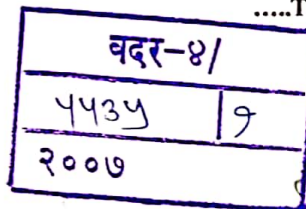 .....T
वदर-४/
५५३५ | १
२००७